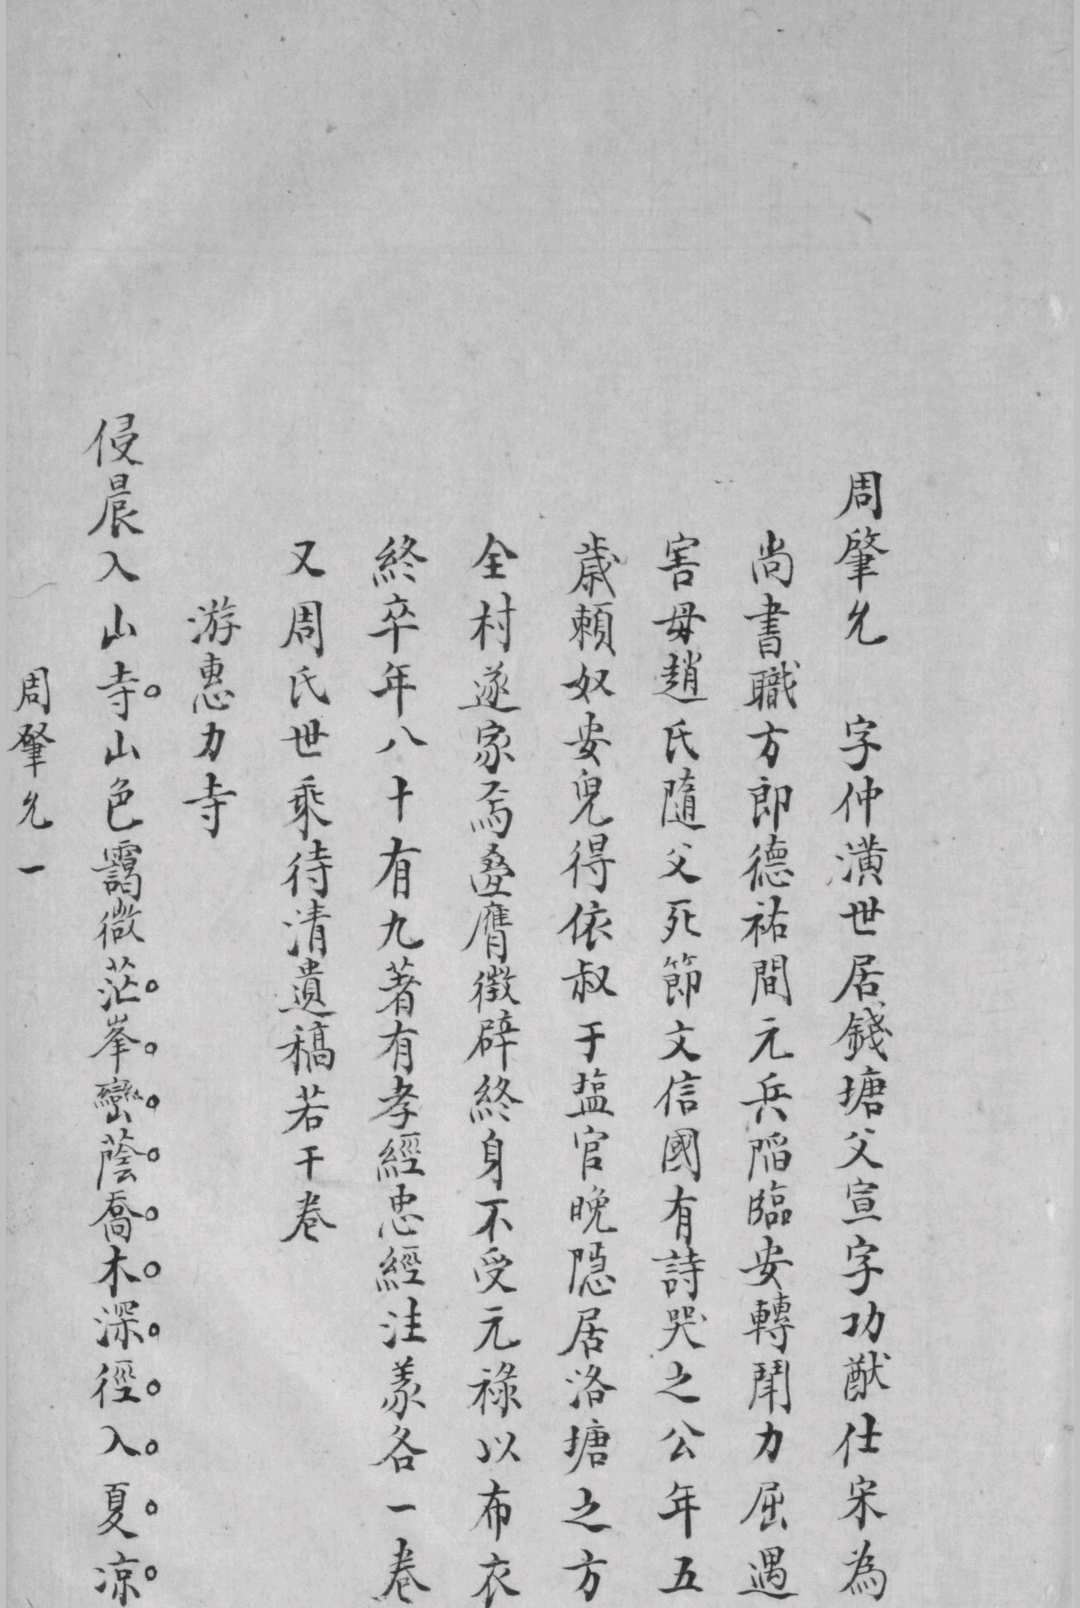 周肇允　字仲潢世居錢塘父宣字功猷仕宋為
尚書職方郎德祐間元兵陷臨安轉鬦力屈遇
害母趙氏隨父死節文信國有詩哭之公年五
歲賴奴安兒得依叔于塩官晚隱居洛塘之方
全村遂家焉疊膺徵辟終身不受元祿以布衣
終卒年八十有九著有孝經忠經注義各一卷
又周氏世乘待清遺稿若干卷
游惠力寺
侵晨入山寺。山色靄微茫。峯。巒。蔭。喬。木。深。徑。入。夏。凉。
周肇允一